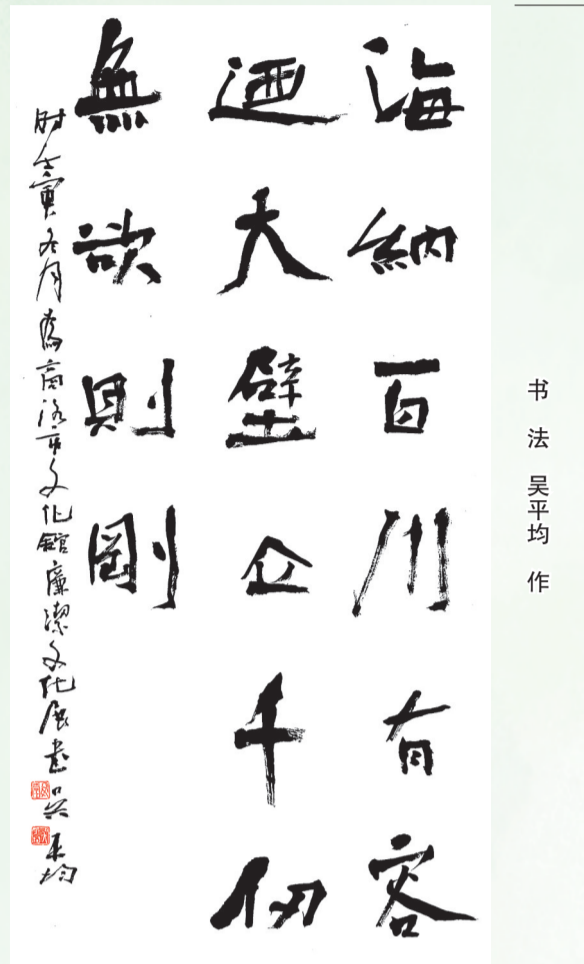 海納百川有容
迺大壁立千仞
無欲則剛
时壬寅冬月為商洛市文化館廉潔文化展書吴平均
书法 吴平均 作